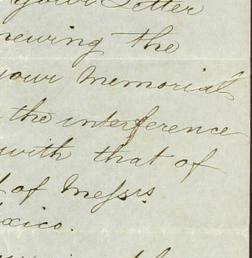 your Letter
newing the
your Memorial
the interference
with that of
of Messrs.
exico.